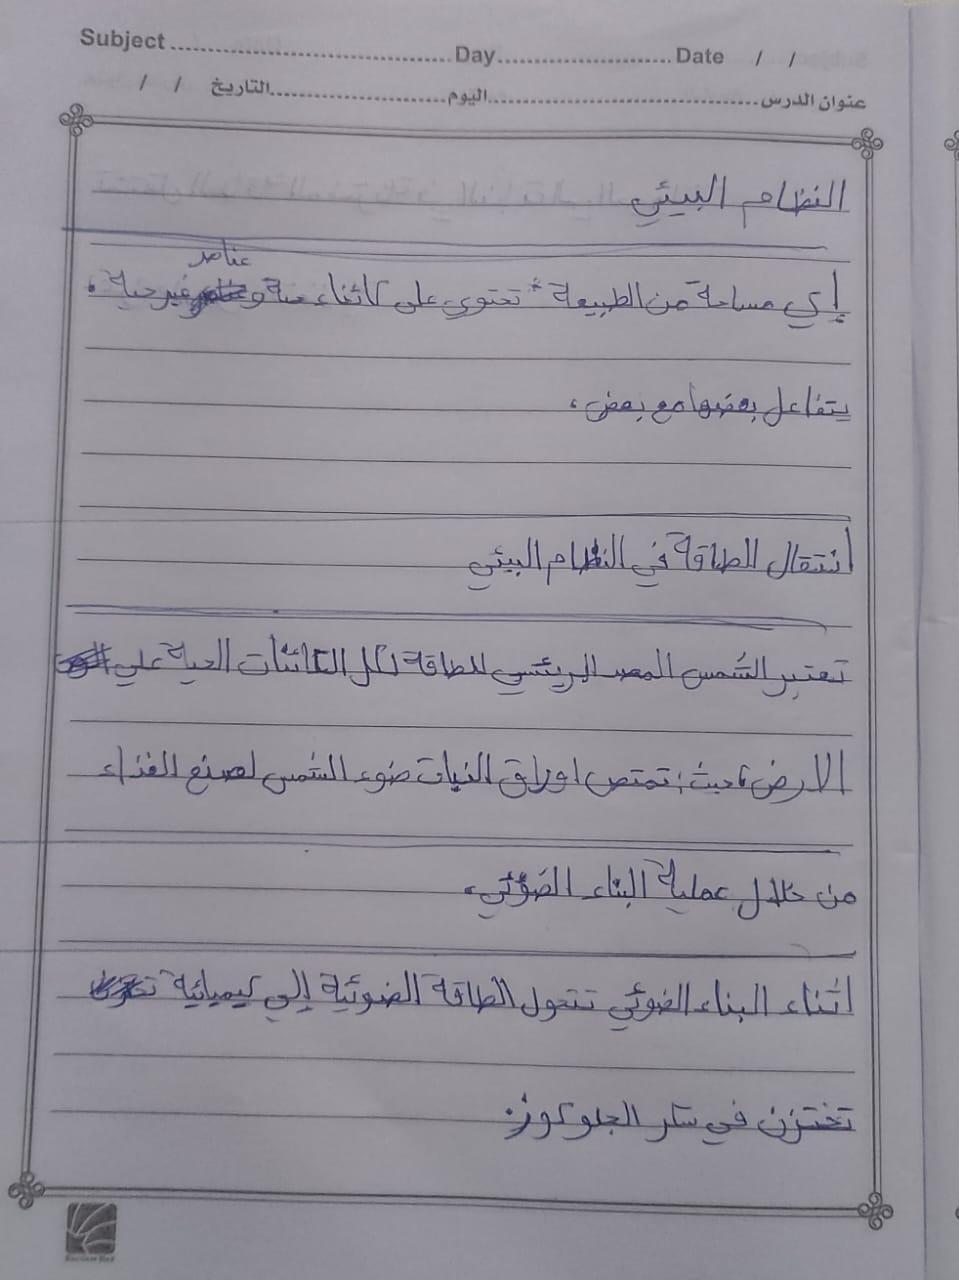 Subject ........ Day ........ Date / /
عنوان الدرس ........ اليوم ........ التاريخ / /
النظام البيئي
عناصر
إي مساحة من الطبيعة تحتوي على كائنات حية و غير حية .
يتفاعل بعضها مع بعض .
انتقال الطاقة في النظام البيئي
تعتبر الشمس المصدر الرئيسي للطاقة لكل الكائنات الحية علي
الارض ، حيث : تمتص اوراق النبات ضوء الشمس لصنع الغذاء
من خلال عملية البناء الضوئي .
اثناء البناء الضوئي تتحول الطاقة الضوئية إلي كيميائية
تختزن في سكر الجلوكوز .